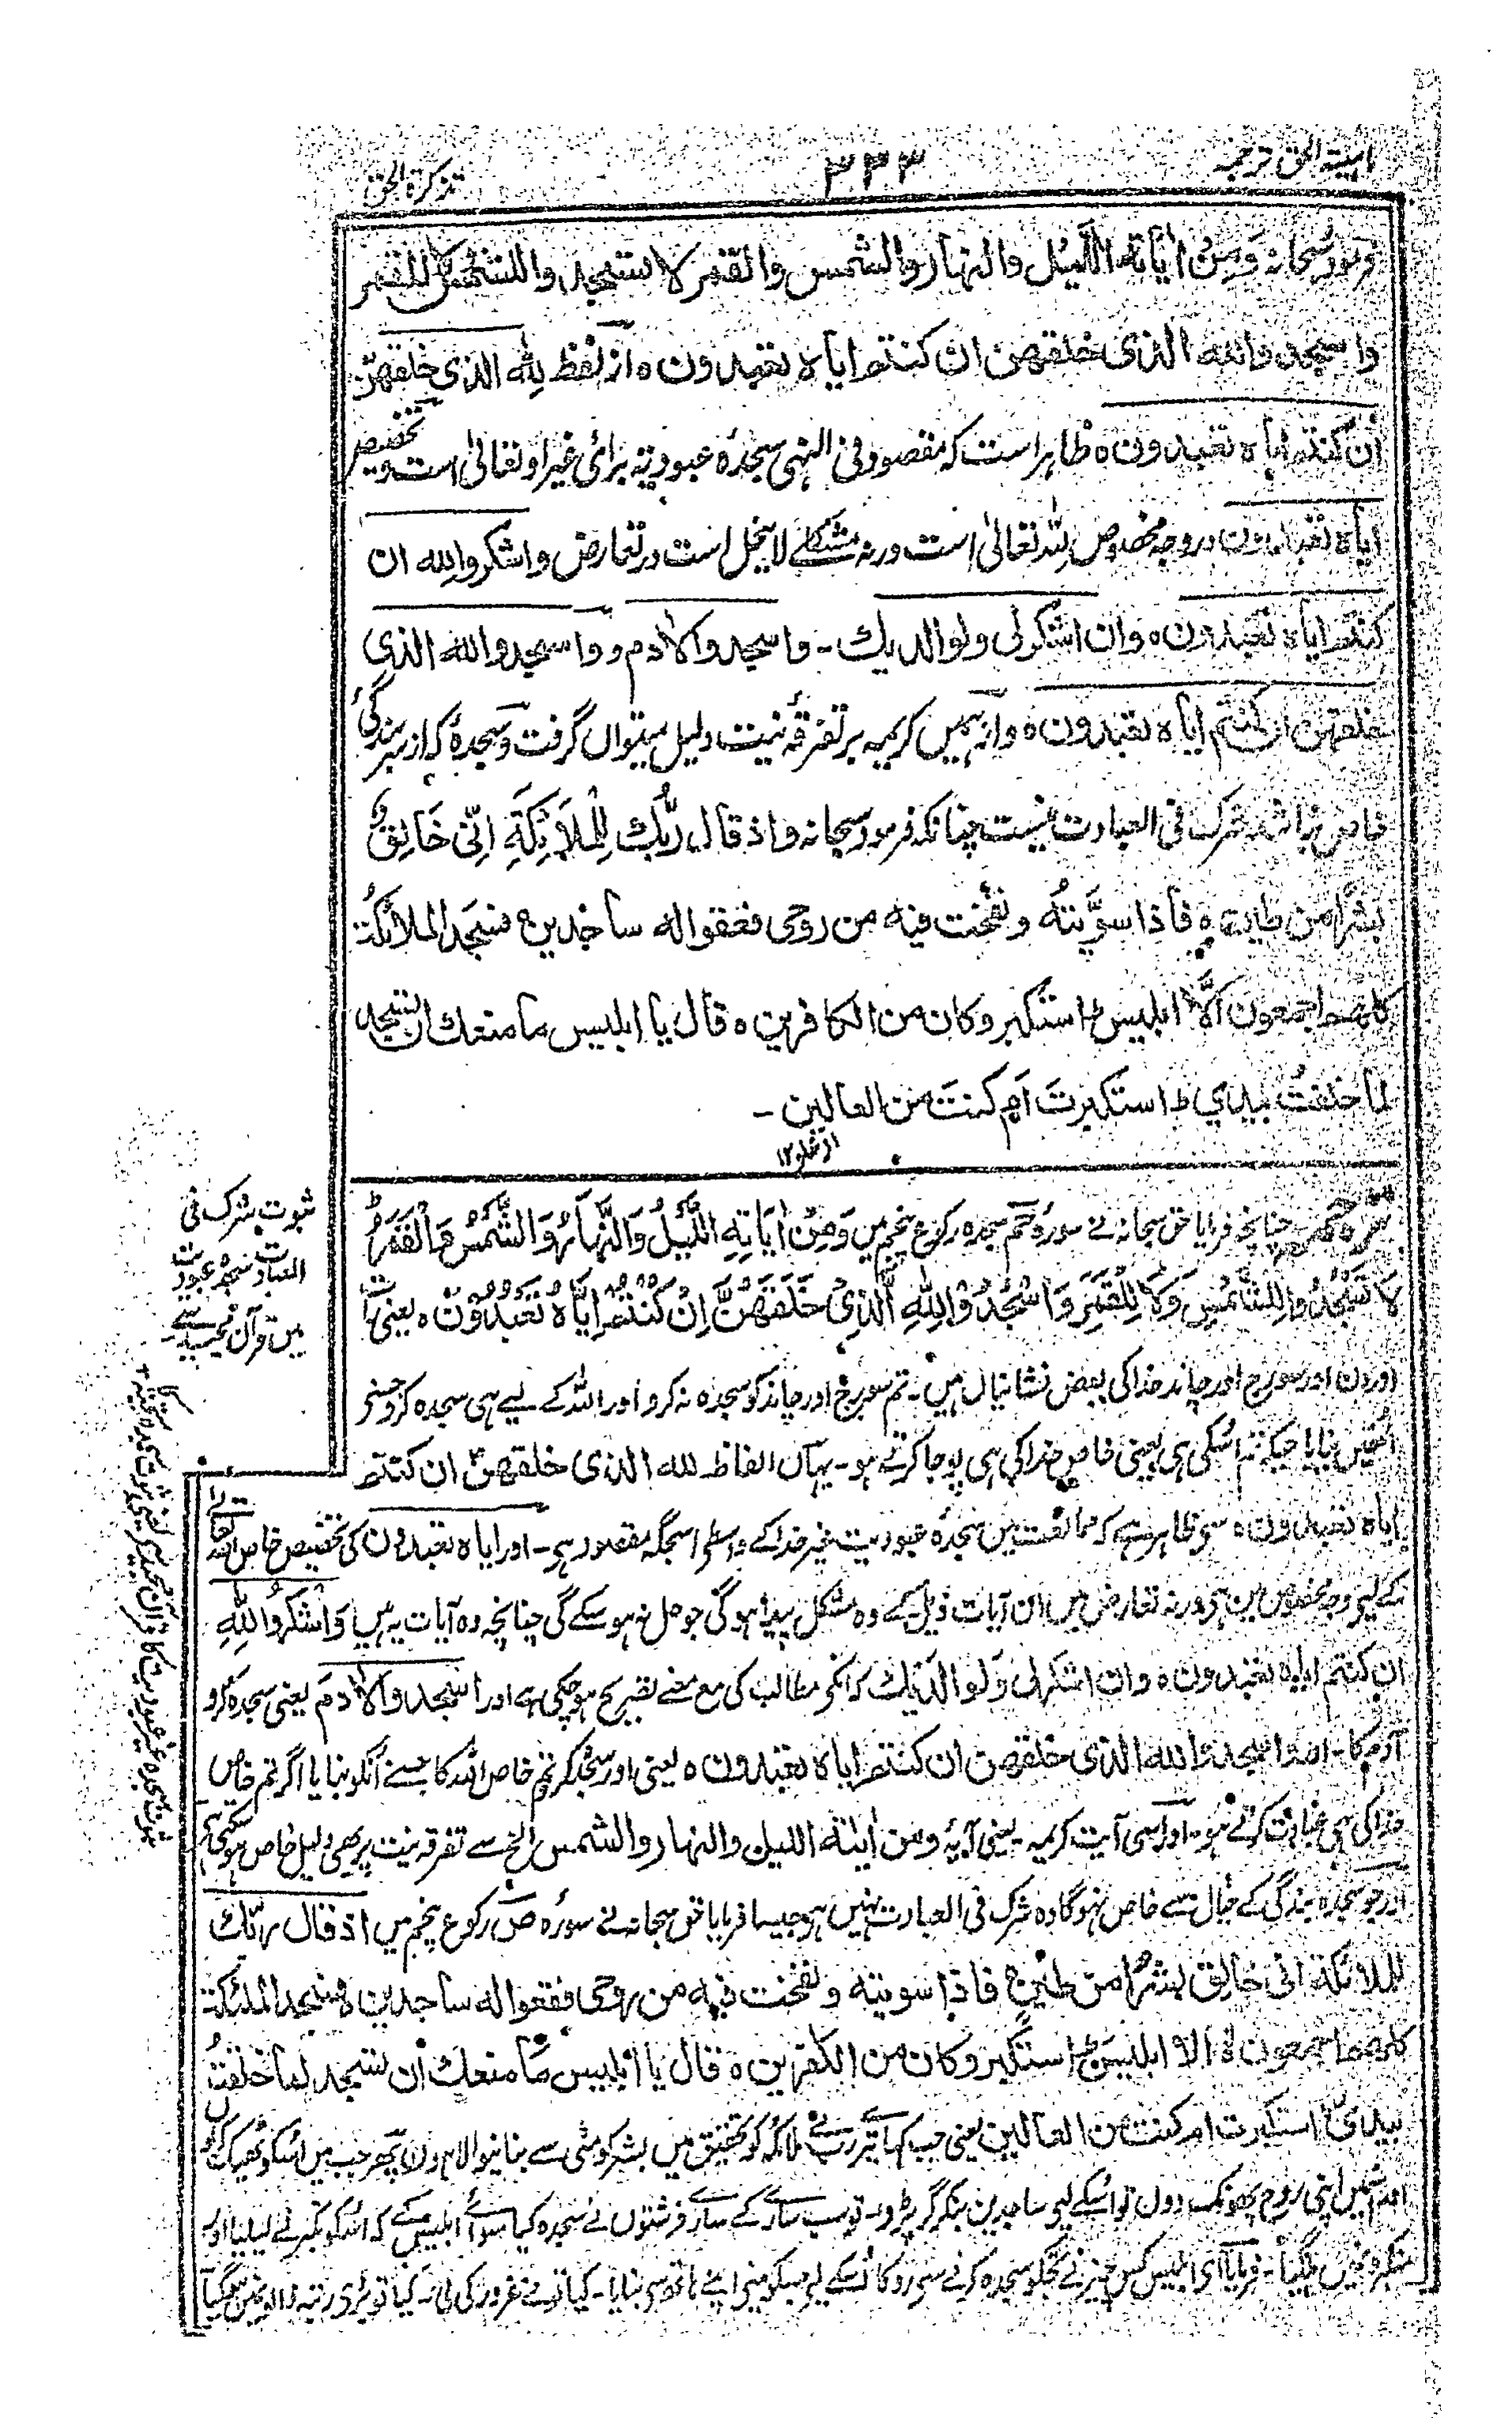 آئینۃ الحق ترجمہ
۳۳۳
تذکرۃ الحق
فرمود سبحانہ وَمِنْ اٰیَاتِہ اللَّیْل والنہار والشمس والقمر لا تسجدوا للشمس ولا للقمر
واسجدوا للہ الذی خلقھن ان کنتم ایاہ تعبدون ہ از لفظ لِلّٰہ الذی خلقھنّ
ان کنتم ایاہ تعبدون ہ ظاہر است کہ مقصود فی النہی سجدہ عبودیتہ برائی غیر او تعالیٰ است و تخصیص
ایاہ تعبدون در وجہ مخصوص لِلّٰہ تعالیٰ است ورنہ مشکلے لاینحل است در تعارض واشکروا للہ ان
کنتم ایاہ تعبدون ہ وان اشکرلی ولوالدیك - واسجدوا لاٰدم و واسجدوا للہ الذی
خلقھن ان کنتم ایاہ تعبدون ہ واز ہمیں کریمہ بر تفرقۂ نیت دلیل میتواں گرفت وسجدۂ کہ از سر بندگیٔ
خاص نباشد شرک فی العبادت نیست چنانکہ فرمود سبحانہ واذ قال رَبُّك لِلْمَلَائِکَۃِ اِنِّی خَالِقٌ
بشرًا من طین ہ فاذا سوَّیتُہ ونفخت فیہ من روحی فقعوا لہ ساجدین ہ فسجد الملائکۃ
کلھم اجمعون اِلَّا ابلیس ط استکبر وکان من الکافرین ہ قال یا ابلیس ما منعك ان تسجد
لما خلقتُ بیدي ط استکبرتَ اَم کنتَ من العالین -
ترجمہ - چنانچہ فرمایا حق سبحانہ نے سورہ حٰم سجدہ رکوع پنجم میں وَمِنْ اٰیَاتِہِ اللَّیْلُ وَالنَّہَارُ وَالشَّمْسُ وَالْقَمَرُ ط
لَا تَسْجُدُوا لِلشَّمْسِ وَلَا لِلْقَمَرِ وَاسْجُدُوْا لِلّٰہِ الَّذِیْ خَلَقَھُنَّ اِنْ کُنْتُمْ اِیَّاہُ تَعْبُدُوْنَ ہ یعنی رات
اور دن اور سورج اور چاند خدا کی بعض نشانیاں ہیں - تم سورج اور چاند کو سجدہ نہ کرو اور اللہ کے لیے ہی سجدہ کرو جسنے
انھیں بنایا جبکہ تم اُسکی ہی یعنی خاص خدا کی ہی پوجا کرتے ہو - یہاں الفاظ للہ الذی خلقھنّ ان کنتم
ایاہ تعبدون ہ سی ظاہر ہے کہ ممانعت میں سجدہ عبودیت غیر خدا کے واسطے اسجگہ مقصود ہی - اور ایاہ تعبدون کی تخصیص خاص اللہ تعالےٰ
کے لیے وجہ مخصوص میں ہی ورنہ تعارض میں ان آیات ذیل کے وہ مشکل پیدا ہوگی جو حل نہ ہو سکے گی چنانچہ وہ آیات یہ ہیں وَاشْکُرُوا لِلّٰہِ
ان کنتم ایاہ تعبدون ہ وان اشکرلی وَلِوالدَیْك کہ انکی مطالب کی مع معنے تصریح ہو چکی ہے اور اسجدوا لاٰدَمَ یعنی سجدہ کرو
آدم کا - اور واسجدوا للہ الذی خلقھن ان کنتم ایاہ تعبدون ہ یعنی اور سجدہ کرو تم خاص اللہ کا جسنے اُنکو بنایا اگر تم خاص
خدا کی ہی عبادت کرتے ہو - اور اسی آیت کریمہ یعنی آیۂ ومن اٰیٰتہ اللیل والنہار والشمس الخ سے تفرقہ نیت پر بھی دلیل خاص ہو سکتی ہی
اور جو سجدہ بندگی کے خیال سے خاص نہوگا وہ شرک فی العبادت نہیں ہی جیسا فرمایا حق سبحانہ نے سورۂ صٓ رکوع پنجم میں اذ قال ربّك
للملائکۃ انی خالق بشرًا من طین ہ فاذا سویتہ ونفخت فیہ من روحی فقعوا لہ ساجدین ہ فسجد الملٰئکۃ
کلھم اجمعون ہ الا ابلیسَ ط استکبر وکان من الکٰفرین ہ قال یا ابلیس مَا منعك ان تسجد لما خلقتُ
بیدیّ استکبرت ام کنت من العالین یعنی جب کہا تیرے رب نے ملائکہ کو تحقیق میں بشر کو مٹی سے بنانیوالا ہوں پھر جب میں اُسکو ٹھیک کرلوں
اور اُسمیں اپنی روح پھونک دوں تو اُسکے لیے ساجدین بنکر گر پڑو - تو سب سارے کے سارے فرشتوں نے سجدہ کیا سوائے ابلیس کے کہ اُسکو تکبر نے لیلیا اور
منکروں میں ہوگیا - فرمایا ای ابلیس کس چیز نے تجکو سجدہ کرنے سی روکا اُسکے لیے جسکو مینے اپنے ہاتھوسی بنایا - کیا تونے غرور کی لی - کیا تو بڑی رتبہ والونمیں ہوگیا
ثبوت شرک فی
العبادت سجدہ عبودیت
میں قرآن مجید سے